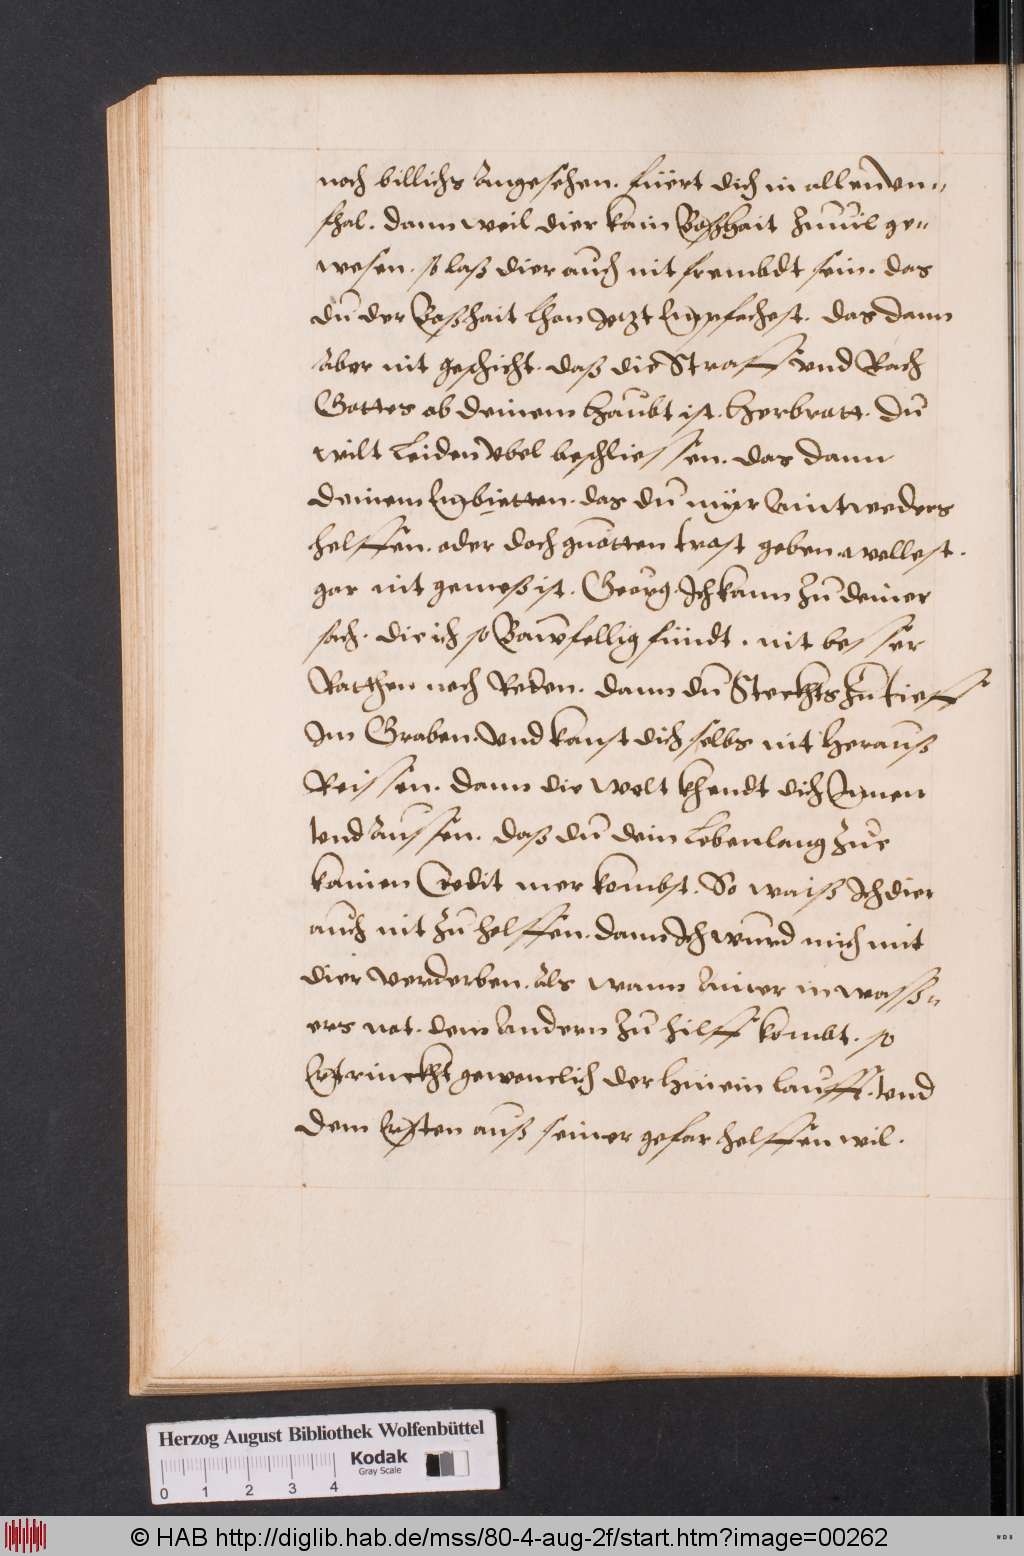 noch billichs Angesehen. füert dich in allen Vn-
fhal. dann weil dier kain Boßhait zuuil ge-
wesen. so laß dier auch nit frembdt sein. das
du der Boßhait lhon Jetzt Empfachest. das dann
Aber nit geschicht. daß die Straff vnd Rach
Gottes ob deinem haubt ist. herbratt. du
wilt Leiden Vbel beschliessen. das dann
deinem Enbietten. das du myr Aintweders
helffen. oder doch guotten trost geben wellest.
gar nit gemeß ist. Georg. Ich kann zu deiner
sach. die ich so Bawfellig fündt. nit besser
Ratthen noch Reden. dann du Steckhst zu tieff
Im Graben. Vnd kanst dich selbs nit herauß
Reissen. dann die welt khendt dich Innen
vnd Aussen. daß du dein Lebenlang zue
kainen Credit mer kombst. So waiß Ich dier
auch nit zu helffen. dann Ich wurd mich mit
dier verderben. Als wann Ainer in wass-
ers not. dem Andern zu hilff kombt. so
Ertrinckht gewenclich der hinein laufft. vnd
dem Ersten auß seiner gefar helffen wil.
Herzog August Bibliothek Wolfenbüttel
Kodak
Gray Scale
0 1 2 3 4
© HAB http://diglib.hab.de/mss/80-4-aug-2f/start.htm?image=00262